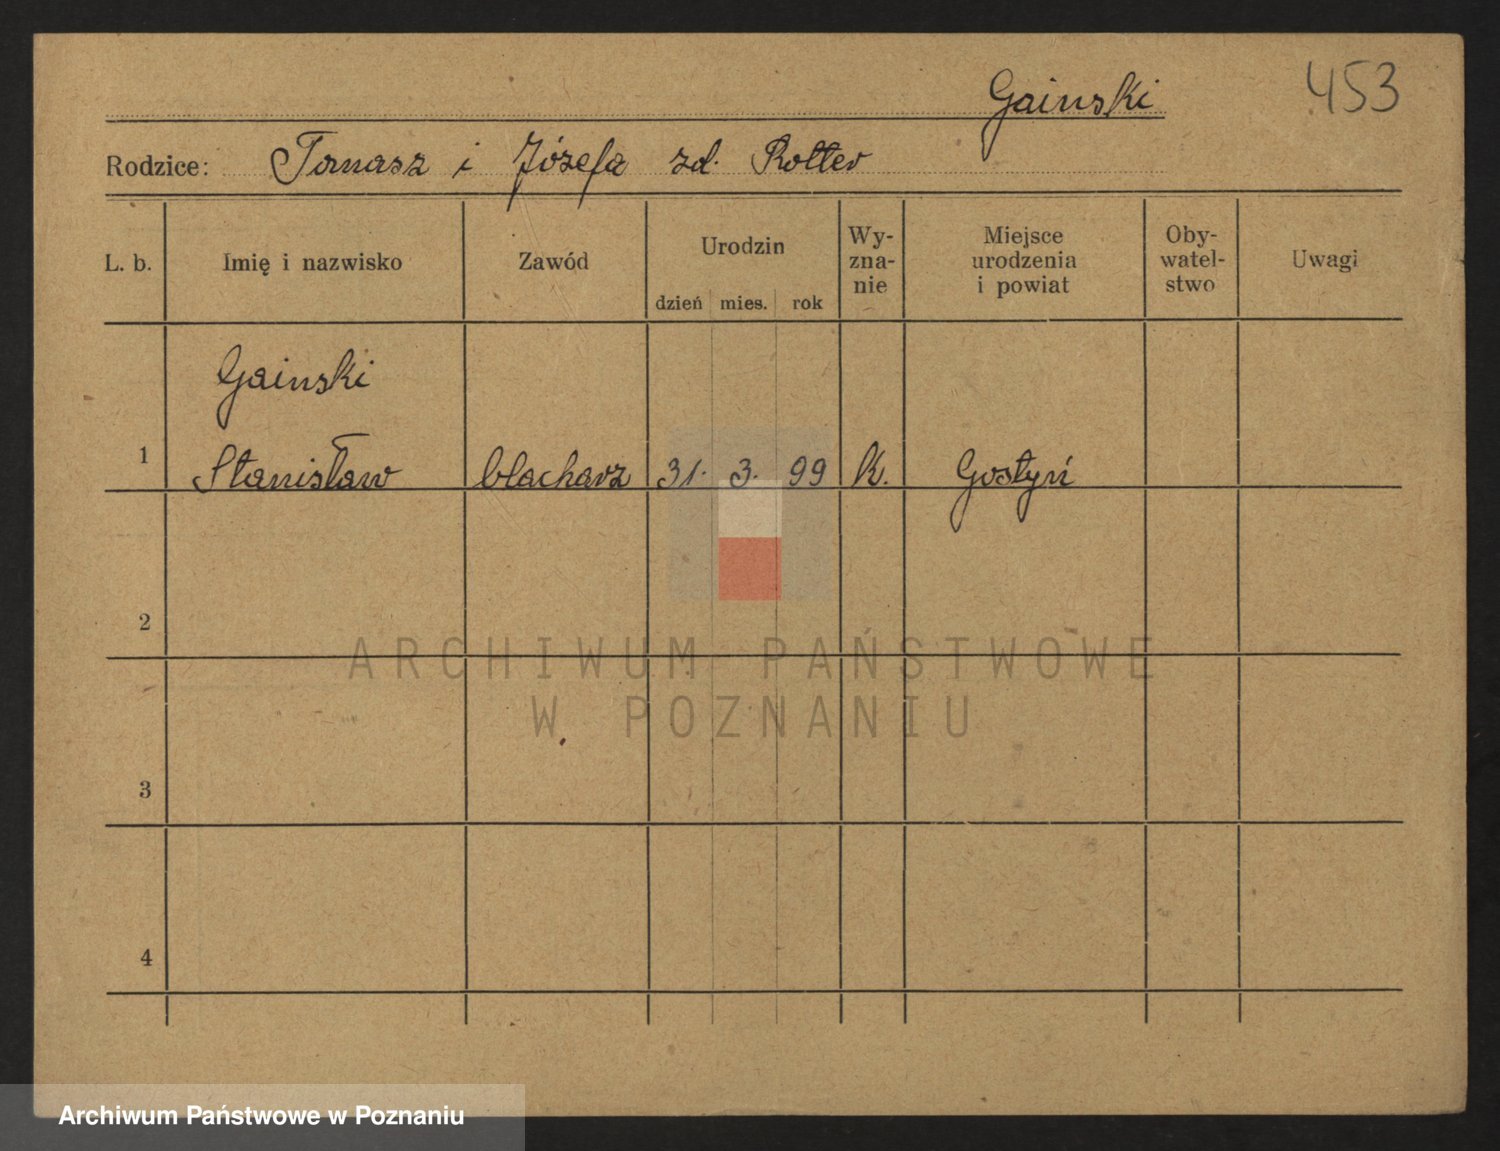 453
Gainski
Rodzice: Tomasz i Józefa zd. Rotter
L. b. Imię i nazwisko Zawód Urodzin dzień mies. rok Wy-zna-nie Miejsce urodzenia i powiat Oby-watel-stwo Uwagi
Gainski
1 Stanisław blacharz 31. 3. 99 K. Gostyń
2
ARCHIWUM PAŃSTWOWE
W POZNANIU
3
4
Archiwum Państwowe w Poznaniu